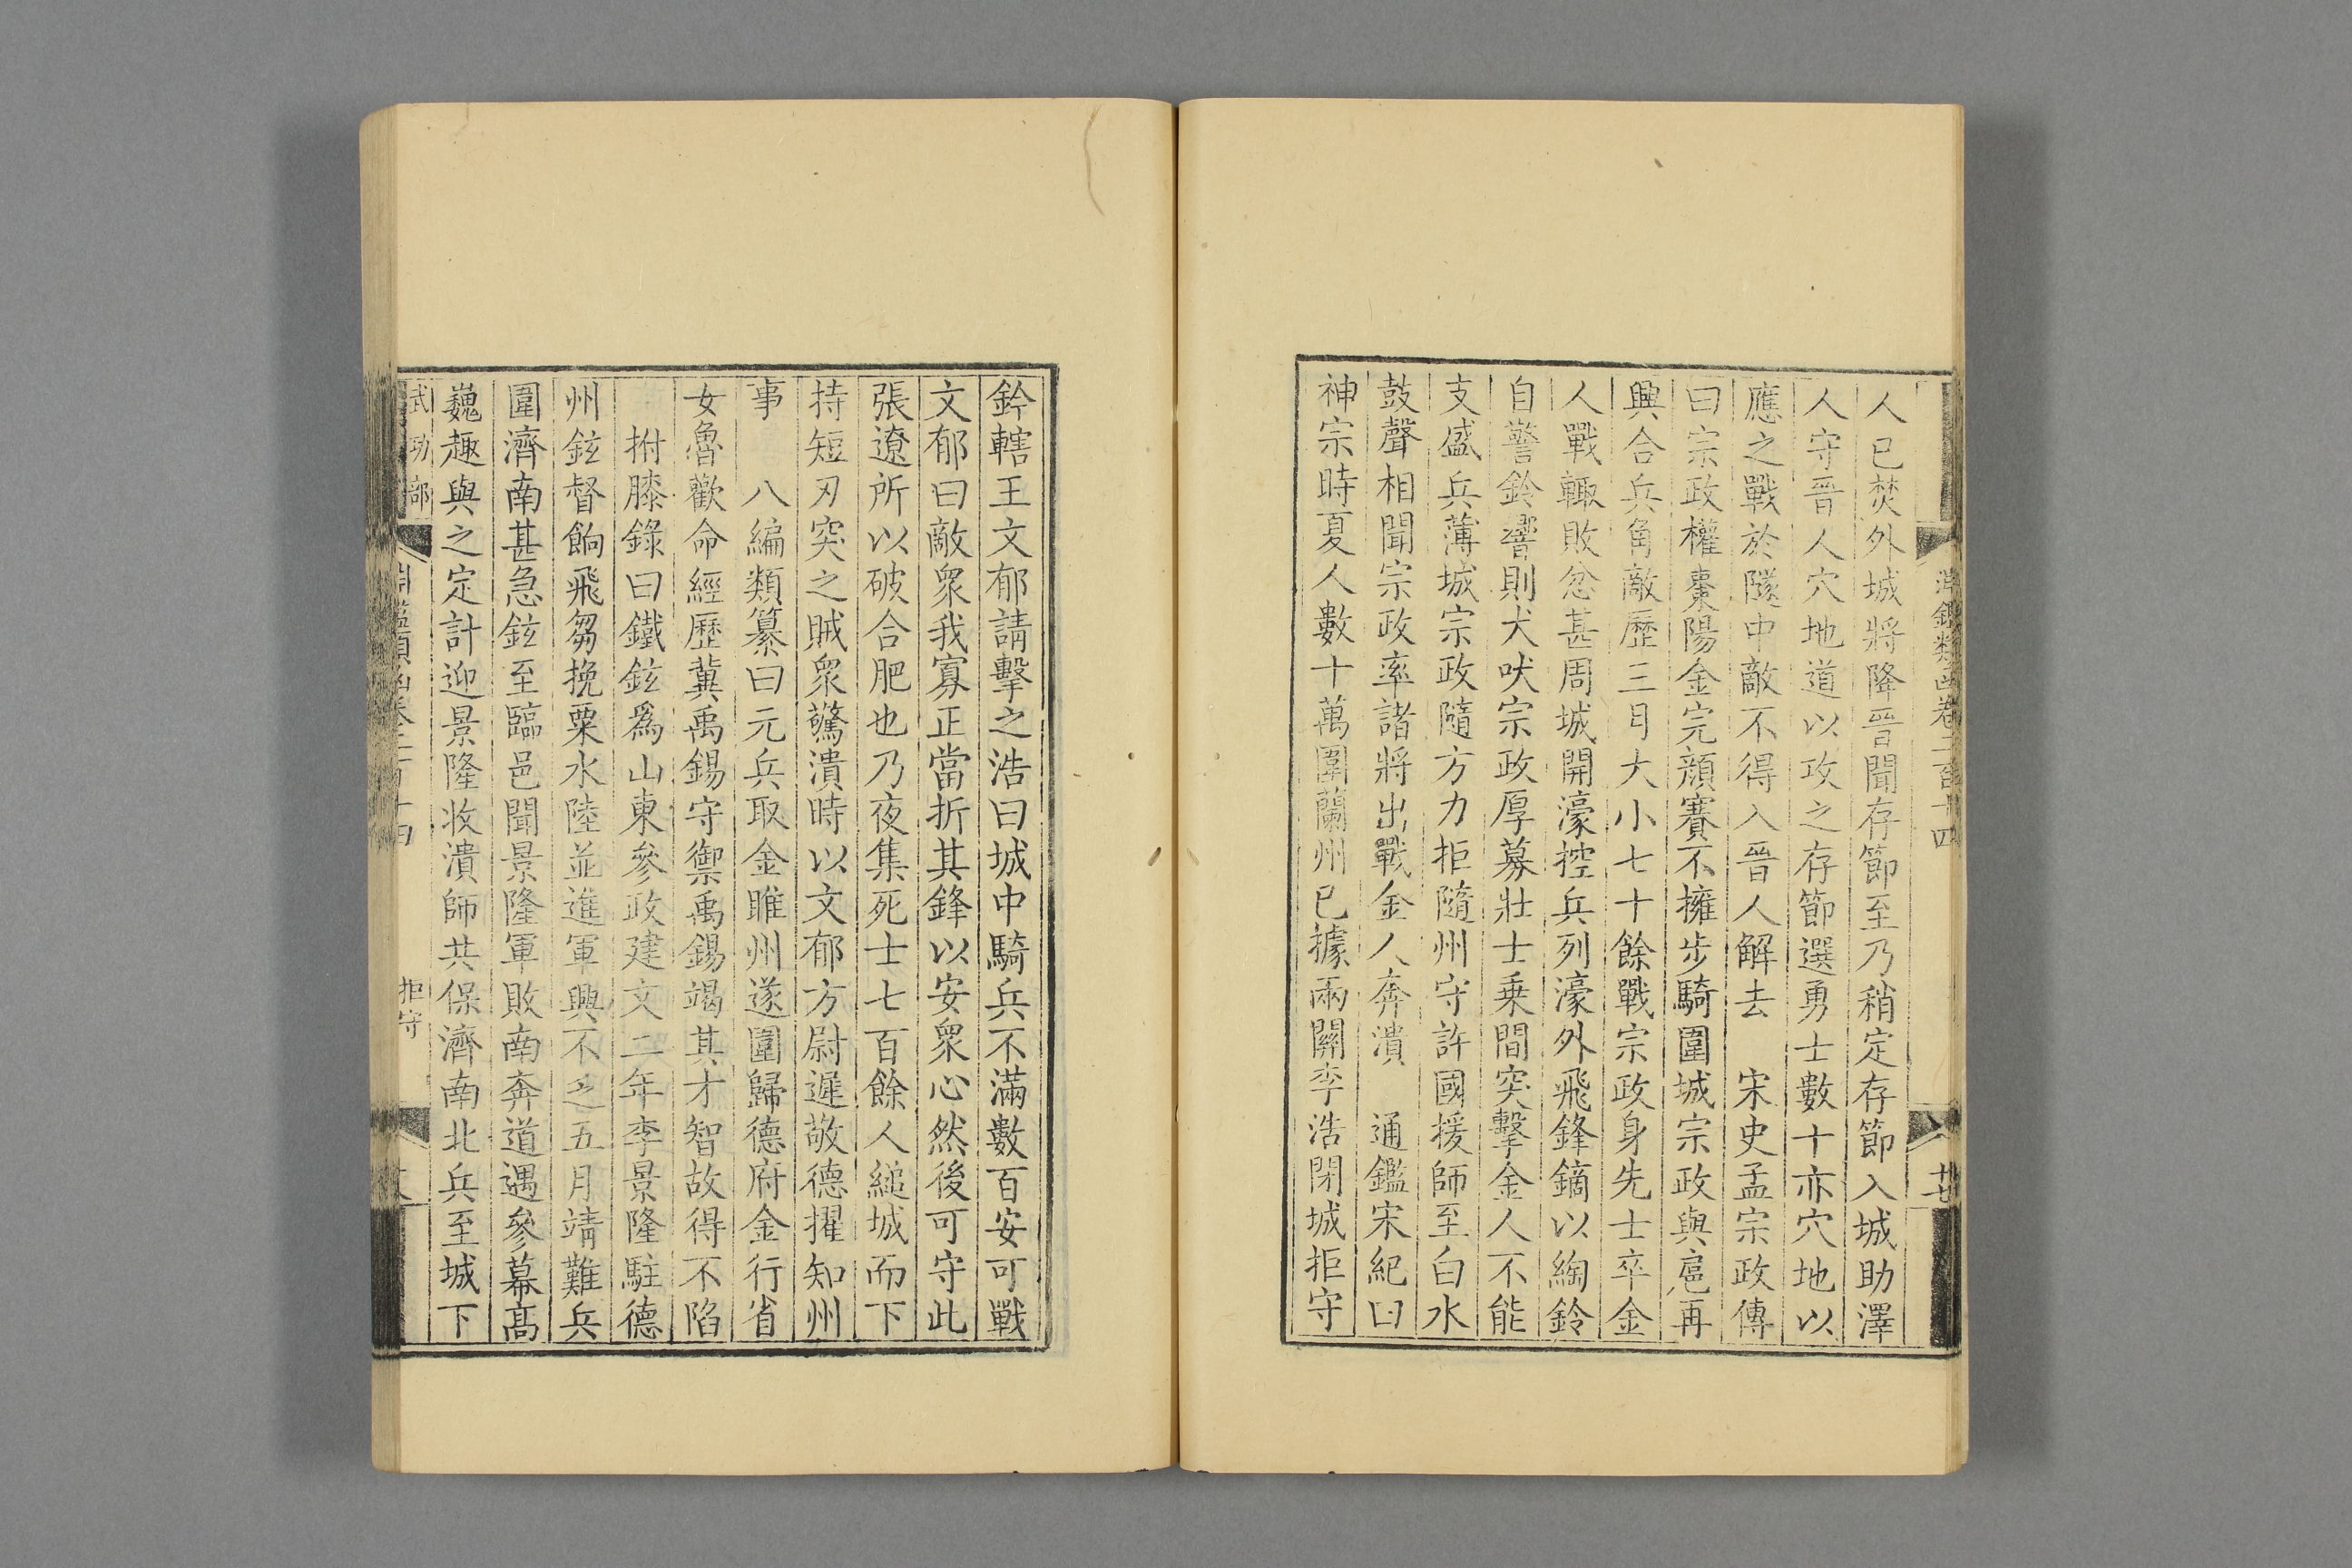 淵鑑類函卷二百十四
廿七
人已焚外城將降晉聞存節至乃稍定存節入城助澤
人守晉人穴地道以攻之存節選勇士數十亦穴地以
應之戰於隧中敵不得入晉人解去　宋史孟宗政傳
曰宗政權棗陽金完顏賽不擁步騎圍城宗政與扈再
興合兵角敵歷三月大小七十餘戰宗政身先士卒金
人戰輙敗忿甚周城開濠控兵列濠外飛鋒鏑以綯鈴
自警鈴響則犬吠宗政厚募壯士乗間突擊金人不能
支盛兵薄城宗政隨方力拒隨州守許國援師至白水
鼓聲相聞宗政率諸將出戰金人奔潰　通鑑宋紀曰
神宗時夏人數十萬圍蘭州已據兩關李浩閉城拒守
鈐轄王文郁請擊之浩曰城中騎兵不滿數百安可戰
文郁曰敵衆我寡正當折其鋒以安衆心然後可守此
張遼所以破合肥也乃夜集死士七百餘人縋城而下
持短刃突之賊衆驚潰時以文郁方尉遲敬德擢知州
事　八編類纂曰元兵取金睢州遂圍歸德府金行省
女魯歡命經歷冀禹錫守禦禹錫竭其才智故得不陷
拊膝錄曰鐵鉉爲山東參政建文二年李景隆駐德
州鉉督餉飛芻挽粟水陸並進軍興不乏五月靖難兵
圍濟南甚急鉉至臨邑聞景隆軍敗南奔道遇參幕髙
巍趣與之定計迎景隆收潰師共保濟南北兵至城下
武功部
拒守